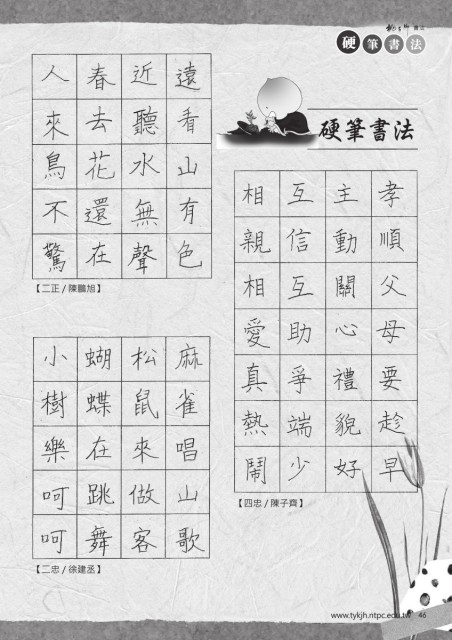 桃子腳
硬筆書法
硬筆書法
孝順父母要趁早
主動關心禮貌好
互信互助爭端少
相親相愛真熱鬧
【四忠/陳子齊】
遠看山有色
近聽水無聲
春去花還在
人來鳥不驚
【二正/陳鵬旭】
麻雀唱山歌
松鼠來做客
蝴蝶在跳舞
小樹樂呵呵
【二忠/徐建丞】
www.tykjh.ntpc.edu.tw 46